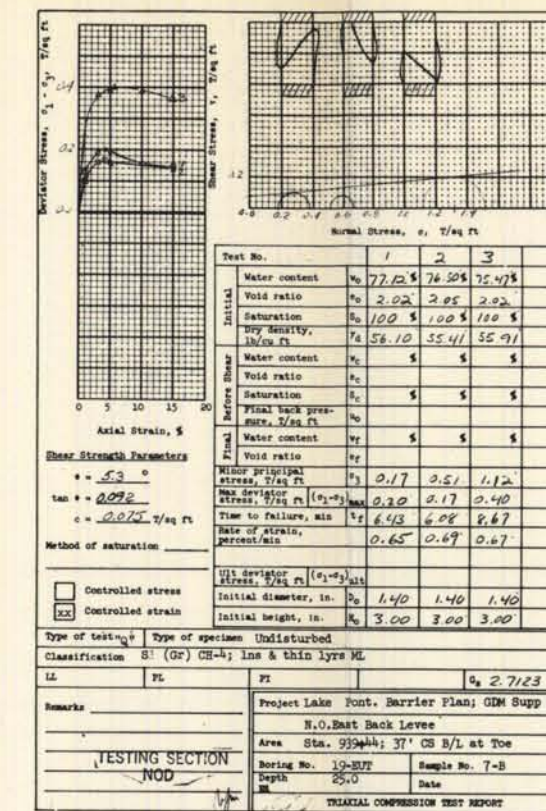 Deviator Stress, σ1 - σ3, T/sq ft
0.4
0.2
0 5 10 15 20
Axial Strain, %
Shear Stress, τ, T/sq ft
0.2
0.0 0.2 0.4 0.6 0.8 1.2 1.4
Normal Stress, σ, T/sq ft
Shear Strength Parameters
φ = 5.3 °
tan φ = 0.092
c = 0.075 T/sq ft
Method of saturation
Controlled stress
xx Controlled strain
Test No. 1 2 3
Initial
Water content w₀ 77.12 % 76.50 % 75.47 %
Void ratio e₀ 2.02 2.05 2.02
Saturation S₀ 100 % 100 % 100 %
Dry density, lb/cu ft γd 56.10 55.41 55.91
Before Shear
Water content wc % % %
Void ratio ec
Saturation Sc % % %
Final back pressure, T/sq ft u₀
Final
Water content wf % % %
Void ratio ef
Minor principal stress, T/sq ft σ3 0.17 0.51 1.12
Max deviator stress, T/sq ft (σ1-σ3)max 0.20 0.17 0.40
Time to failure, min tf 6.43 6.08 8.67
Rate of strain, percent/min 0.65 0.69 0.67
Ult deviator stress, T/sq ft (σ1-σ3)ult
Initial diameter, in. D₀ 1.40 1.40 1.40
Initial height, in. H₀ 3.00 3.00 3.00
Type of test "Q" Type of specimen Undisturbed
Classification (Gr) CH-4; lns & thin lyrs ML
LL PL PI Gs 2.7123
Remarks
TESTING SECTION
NOD
Project Lake Pont. Barrier Plan; GDM Supp
N.O.East Back Levee
Area Sta. 939+44; 37' CS B/L at Toe
Boring No. 19-EUT Sample No. 7-B
Depth 25.0 Date
TRIAXIAL COMPRESSION TEST REPORT